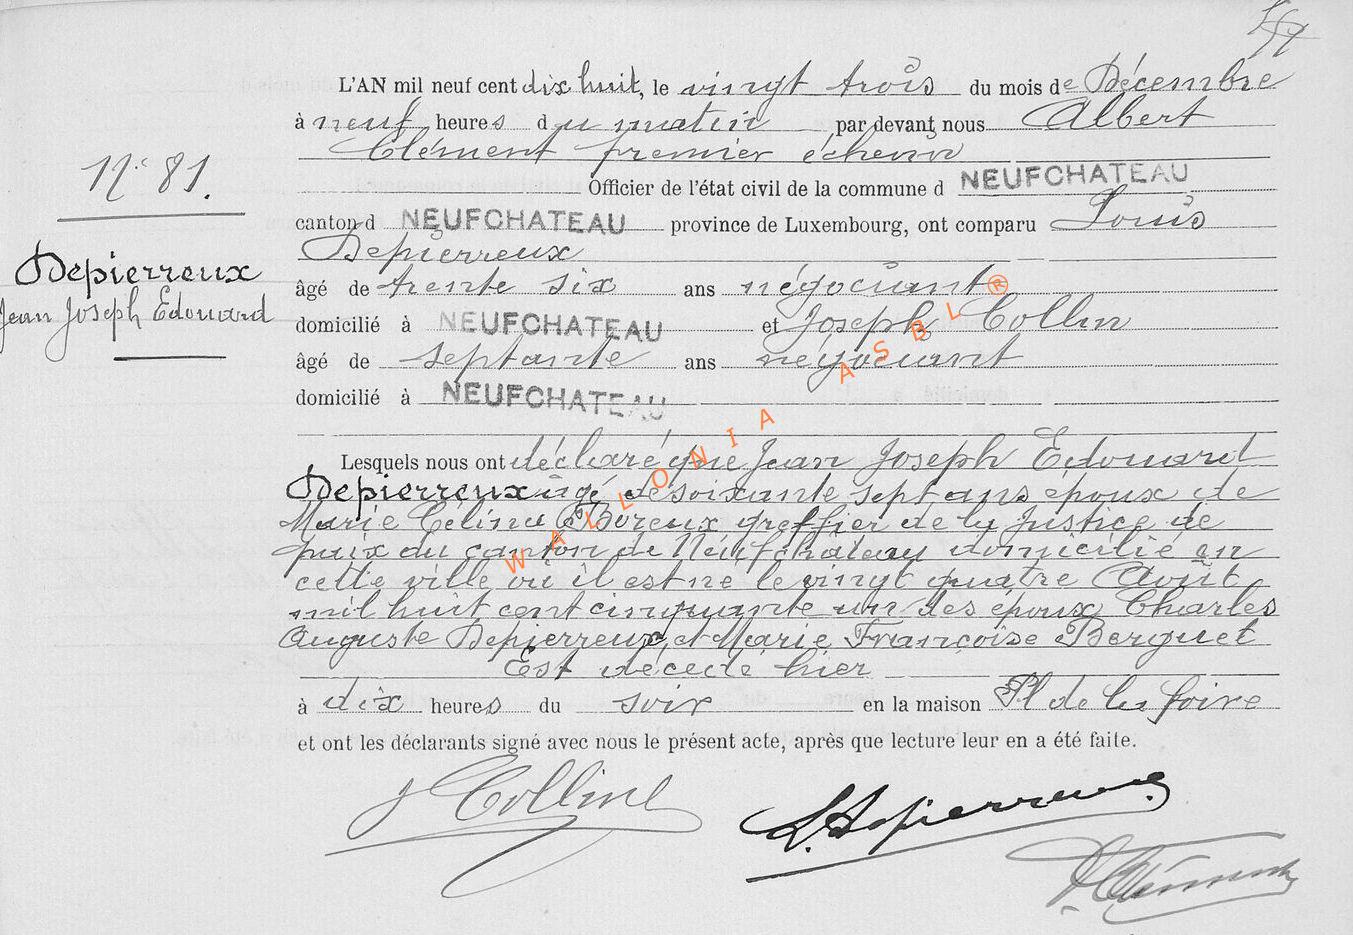 L'AN mil neuf cent dix huit, le vingt trois du mois de Décembre
à neuf heures du matin par devant nous Albert
Clément premier échevin
Officier de l'état civil de la commune d NEUFCHATEAU
N° 81.
canton d NEUFCHATEAU province de Luxembourg, ont comparu Louis
Depierreux
Depierreux
Jean Joseph Edouard
âgé de trente six ans négociant
domicilié à NEUFCHATEAU et Joseph Collin
âgé de septante ans négociant
domicilié à NEUFCHATEAU
Lesquels nous ont déclaré que Jean Joseph Edouard
Depierreux âgé de soixante sept ans époux de
Marie Célina Boreux greffier de la Justice de
paix du canton de Neufchâteau domicilié en
cette ville où il est né le vingt quatre Août
mil huit cent cinquante un des époux Charles
Auguste Depierreux et Marie Françoise Berguet
Est décédé hier
à dix heures du soir en la maison Pl de la foire
et ont les déclarants signé avec nous le présent acte, après que lecture leur en a été faite.
J Collin
L. Depierreux
Clément
WALLONIA ASBL®